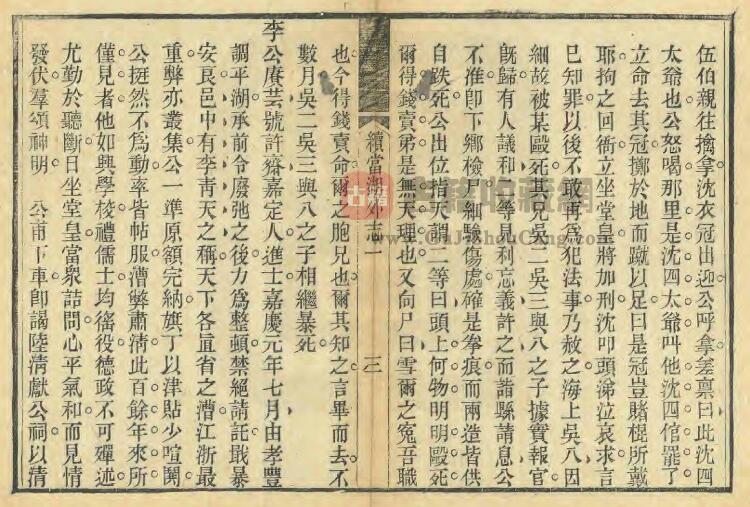 伍伯親往擒拿沈衣冠出迎公呼拿差禀曰此沈四
太爺也公怒喝那里是沈四太爺叫他沈四倌罷了
立命去其冠擲於地而蹴以足曰是冠豈賭棍所戴
耶拘之回衙立坐堂皇將加刑沈叩頭涕泣哀求言
已知罪以後不敢再爲犯法事乃赦之海上吳八因
細故被某毆死其兄吳二吳三與八之子據實報官
旣歸有人議和二等見利忘義許之而詣縣請息公
不准卽下鄉檢尸細驗傷處確是拳痕而兩造皆供
自跌死公出位指天謂二等曰頭上何物明明毆死
爾得錢賣弟是無天理也又向尸曰雪爾之寃吾職
也今得錢賣命爾之胞兄也爾其知之言畢而去不
數月吳二吳三與八之子相繼暴死
李公賡芸號許齋嘉定人進士嘉慶元年七月由孝豐
調平湖承前令廢弛之後力爲整頓禁絕請託戢暴
安良邑中有李靑天之稱天下各直省之漕江浙最
重弊亦叢集公一準原額完納旗丁以津貼少喧鬨
公挺然不爲動率皆帖服漕弊肅淸此百餘年來所
僅見者他如興學校禮儒士均徭役德政不可殫述
尤勤於聽斷日坐堂皇當衆詰問心平氣和而見情
發伏羣頌神明 公甫下車卽謁陸淸獻公祠以淸
續當湖外志一
三
古籍
古籍收藏網
www.GuJiShouCang.com